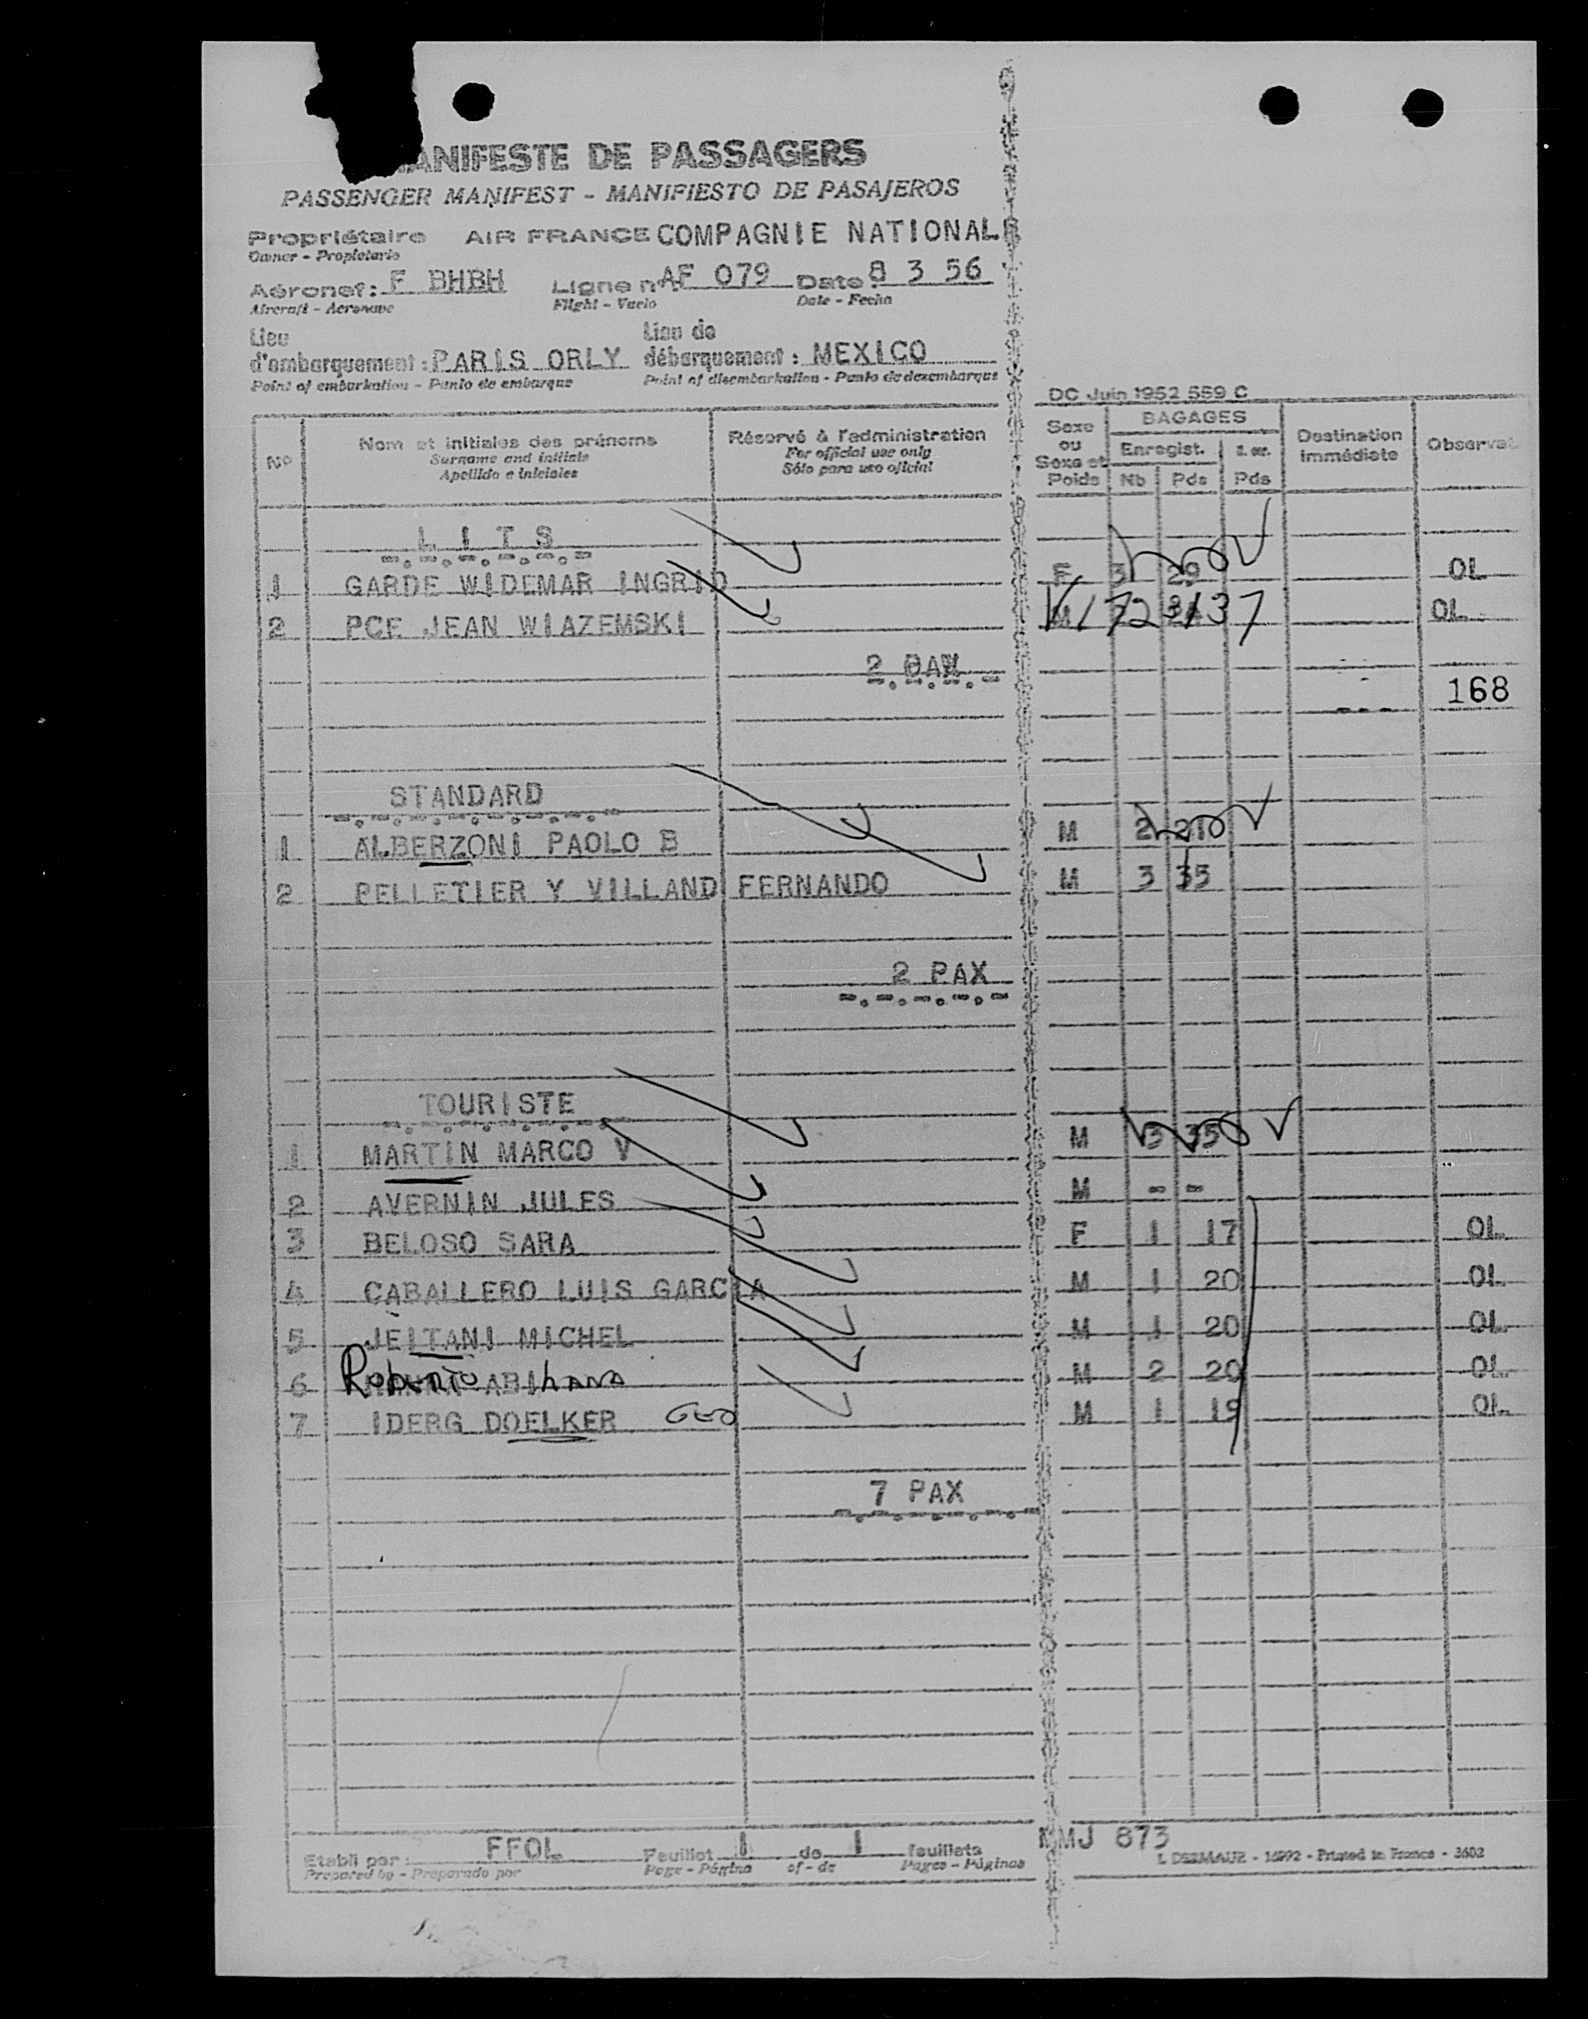 MANIFESTE DE PASSAGERS
PASSENGER MANIFEST - MANIFIESTO DE PASAJEROS
Propriétaire AIR FRANCE COMPAGNIE NATIONALE
Owner - Propietario
Aéronef: F BHBH Ligne n°: AF 079 Date: 8 3 56
Aircraft - Aeronave Flight - Vuelo Date - Fecha
Lieu d'embarquement: PARIS ORLY Lieu de débarquement: MEXICO
Point of embarkation - Punto de embarque Point of disembarkation - Punto de desembarque
DC Juin 1952 559 C
No Nom et initiales des prénoms Réservé à l'administration Sexe ou Sexe et Poids BAGAGES Destination immédiate Observat
Surname and initials For official use only Enregist.
Apellido e iniciales Sólo para uso oficial Nb Pds Pds
L I T S
1 GARDE WIDEMAR INGRID F 3 29 OL
2 PCE JEAN WIAZEMSKI M OL
2
168
STANDARD
1 ALBERZONI PAOLO B M 2
2 PELLETIER Y VILLAND FERNANDO M 3 35
2 PAX
TOURISTE
1 MARTIN MARCO V M 3 35
2 AVERNIN JULES M - -
3 BELOSO SARA F 1 17 OL
4 CABALLERO LUIS GARCIA M 1 20 OL
5 JEITANI MICHEL M 1 20 OL
6 Roberto M 2 20 OL
7 IDERG DOELKER Geo M 1 19 OL
7 PAX
Etabli par: FFOL Feuillet 1 de 1 feuillets MMJ 873
Prepared by - Preparado por Page - Página of - de Pages - Páginas - 16992 - Printed in France - 3602